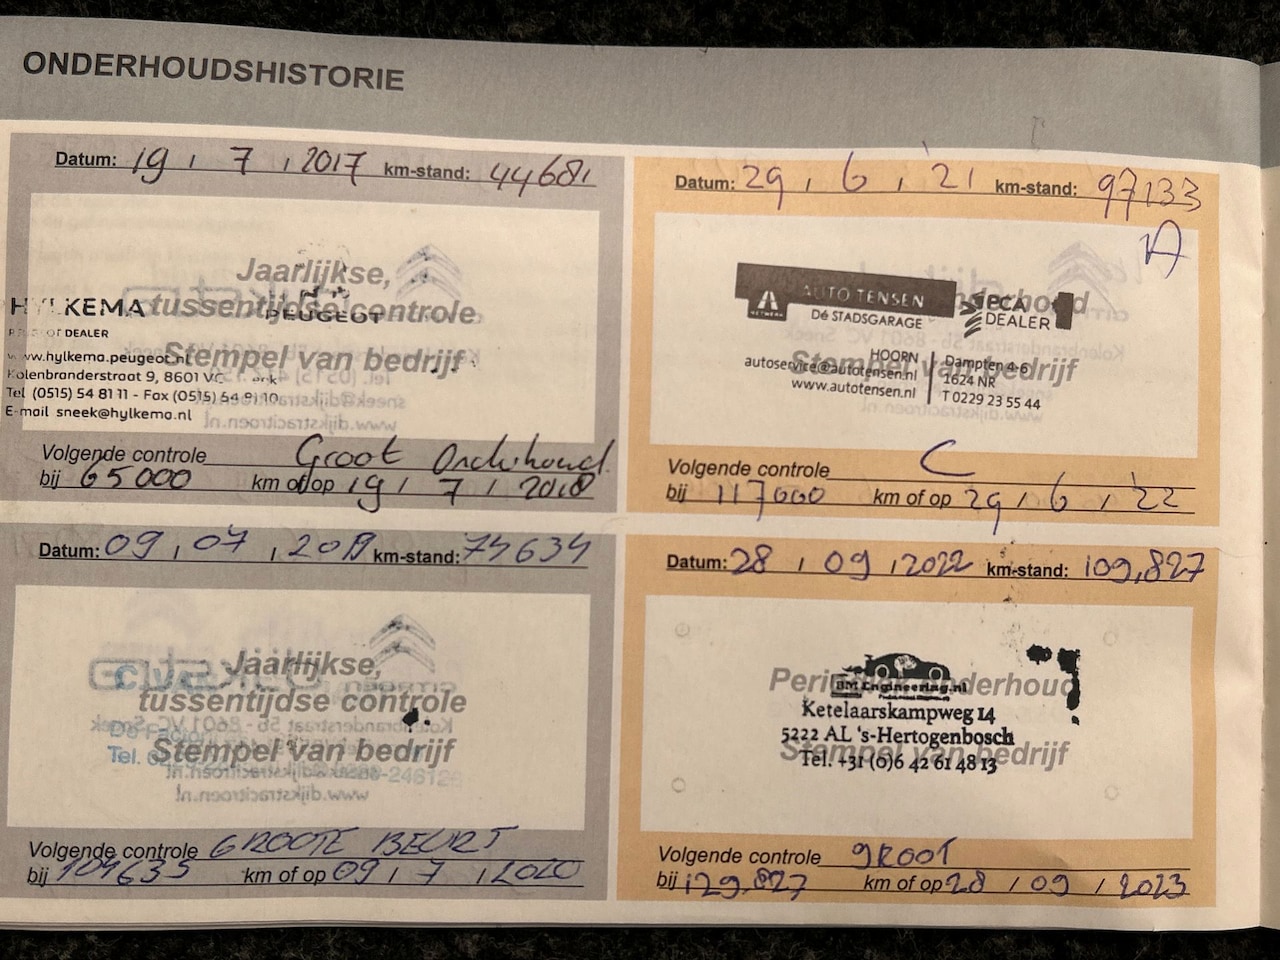 ONDERHOUDSHISTORIE
Datum: 19 / 7 / 2017 km-stand: 44681
Jaarlijkse,
tussentijdse controle
Stempel van bedrijf
HYLKEMA PEUGEOT
PEUGEOT DEALER
www.hylkema.peugeot.nl
Kolenbranderstraat 9, 8601 VC
Tel (0515) 54 81 11 - Fax (0515) 54 81 10
E-mail sneek@hylkema.nl
Volgende controle Groot Onderhoud
bij 65000 km of op 19 / 7 / 2018
Datum: 29 / 6 / '21 km-stand: 97133
A
AUTO TENSEN
Dé STADSGARAGE
ECA
DEALER
Stempel van bedrijf
HOORN
autoservice@autotensen.nl
www.autotensen.nl
Dampten 4-6
1624 NR
T 0229 23 55 44
Volgende controle C
bij 117000 km of op 29 / 6 / '22
Datum: 09 / 07 / 2019 km-stand: 74634
Jaarlijkse,
tussentijdse controle
Stempel van bedrijf
Tel.
Volgende controle GROOTE BEURT
bij 104635 km of op 09 / 7 / 2020
Datum: 28 / 09 / 2022 km-stand: 109,827
Periodiek onderhoud
BM Engineering.nl
Ketelaarskampweg 14
5222 AL 's-Hertogenbosch
Stempel van bedrijf
Tel. +31 (0)6 42 61 48 13
Volgende controle GROOT
bij 129,827 km of op 28 / 09 / 2023